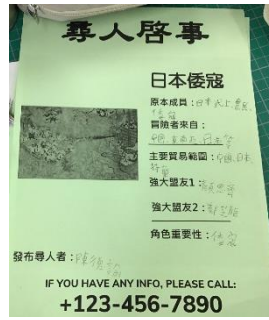 尋人啓事
日本倭寇
原本成員：日本武士、農民、
冒險者來自：
中國、東南亞、日本等
主要貿易範圍：中國、日本、
強大盟友1：顏思齊
強大盟友2：鄭芝龍
角色重要性：
發布尋人者：陳
IF YOU HAVE ANY INFO, PLEASE CALL:
+123-456-7890